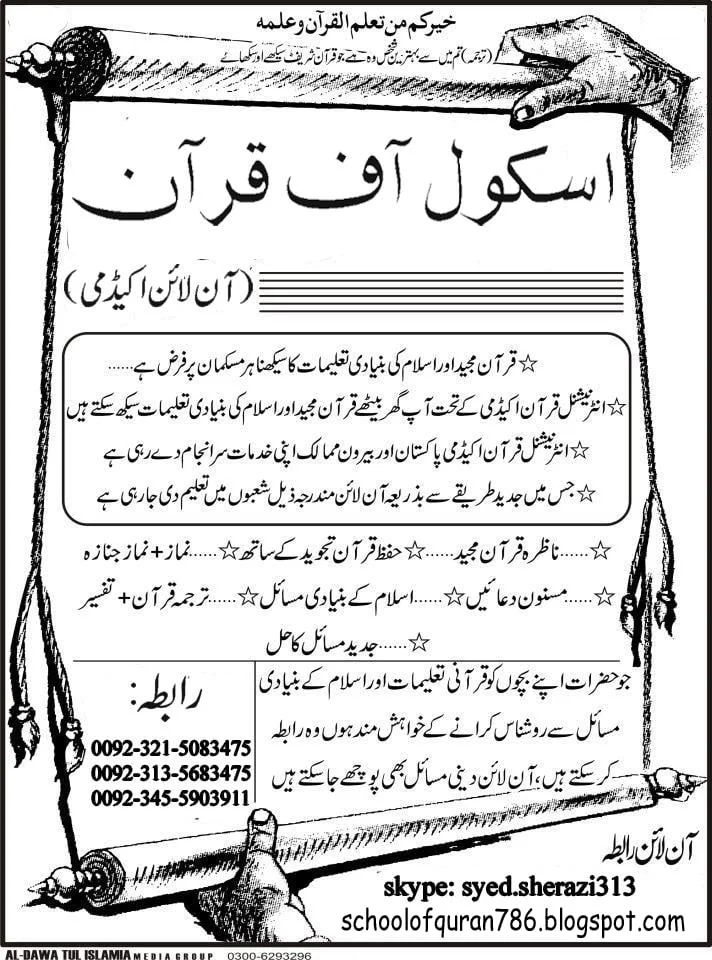 خیرکم من تعلم القرآن وعلمه
(ترجمہ) تم میں سے بہترین شخص وہ ہے جو قرآن شریف سیکھے اور سکھائے
اسکول آف قرآن
(آن لائن اکیڈمی)
☆ قرآن مجید اور اسلام کی بنیادی تعلیمات کا سیکھنا ہر مسلمان پر فرض ہے......
☆ انٹرنیشنل قرآن اکیڈمی کے تحت آپ گھر بیٹھے قرآن مجید اور اسلام کی بنیادی تعلیمات سیکھ سکتے ہیں
☆ انٹرنیشنل قرآن اکیڈمی پاکستان اور بیرون ممالک اپنی خدمات سرانجام دے رہی ہے
☆ جس میں جدید طریقے سے بذریعہ آن لائن مندرجہ ذیل شعبوں میں تعلیم دی جا رہی ہے
☆......ناظرہ قرآن مجید......☆ حفظ قرآن تجوید کے ساتھ ☆......نماز + نماز جنازہ
☆......مسنون دعائیں ☆......اسلام کے بنیادی مسائل ☆......ترجمہ قرآن + تفسیر
☆......جدید مسائل کا حل
جو حضرات اپنے بچوں کو قرآنی تعلیمات اور اسلام کے بنیادی
مسائل سے روشناس کرانے کے خواہش مند ہوں وہ رابطہ
کر سکتے ہیں، آن لائن دینی مسائل بھی پوچھے جا سکتے ہیں
رابطہ:
0092-321-5083475
0092-313-5683475
0092-345-5903911
آن لائن رابطہ
skype: syed.sherazi313
schoolofquran786.blogspot.com
AL-DAWA TUL ISLAMIA MEDIA GROUP 0300-6293296